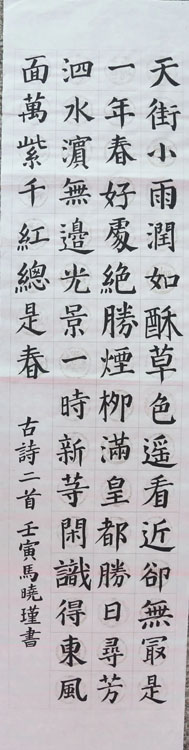 天街小雨潤如酥草色遥看近卻無冣是
一年春好處絶勝煙栁滿皇都勝日尋芳
泗水濵無邊光景一時新等閑識得東風
面萬紫千紅總是春
古詩二首壬寅馬曉瑾書